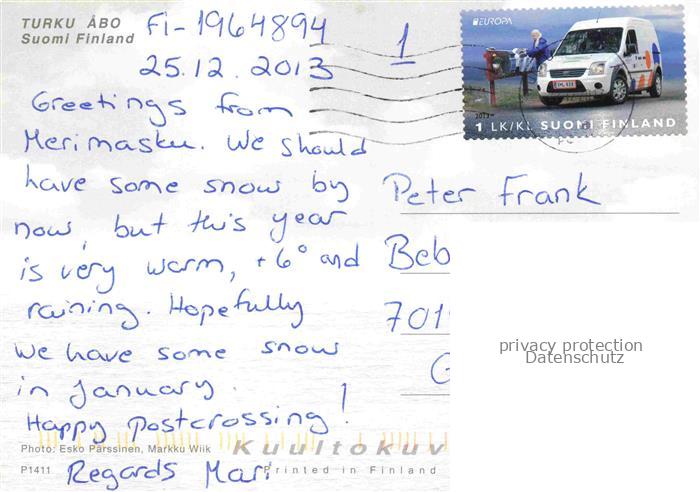 TURKU ÅBO
Suomi Finland
FI-1964894
25.12.2013
1
EUROPA
1 LK/KL SUOMI FINLAND
Greetings from
Merimasku. We should
have some snow by
now, but this year
is very warm, +6° and
raining. Hopefully
we have some snow
in January.
Happy Postcrossing!
Regards Mari
Peter Frank
Beb
701
G
privacy protection
Datenschutz
Photo: Esko Pärssinen, Markku Wiik
P1411
Kuultokuv
Printed in Finland